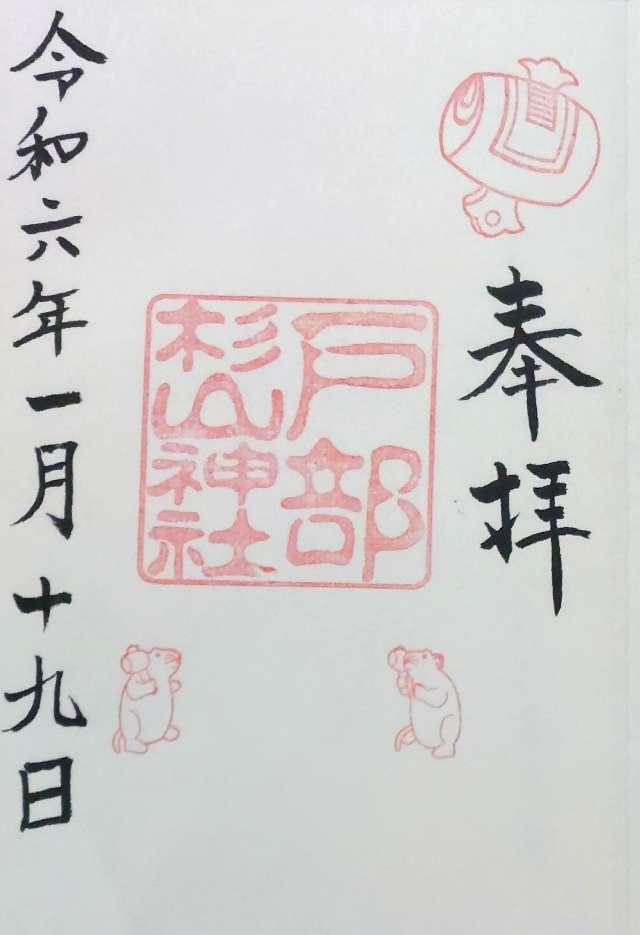 奉拝
戸部
杉山神社
令和六年一月十九日